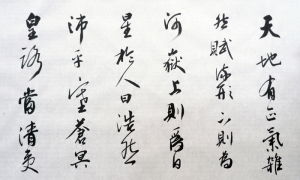 天地有正氣雜
然賦流形下則為
河嶽上則為日
星於人曰浩然
沛乎塞蒼冥
皇路當清夷